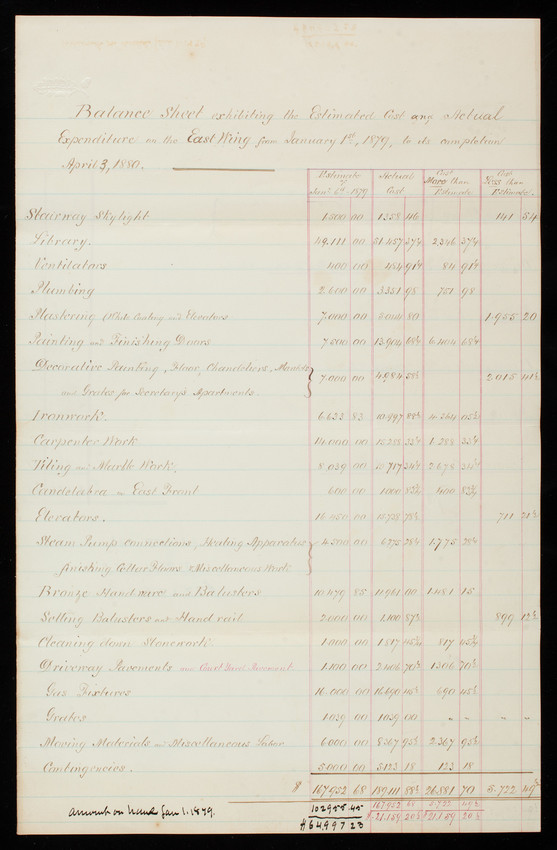 Balance Sheet exhibiting the Estimated Cost and Actual
Expenditure on the East Wing from January 1st, 1879, to its completion
April 3, 1880.
Estimate of Jan'y 1st 1879 Actual Cost Cost More than Estimate Cost Less than Estimate.
Stairway Skylight 1.500 00 1358 46 141 54
Library. 49.111 00 51.457 37½ 2.346 37½
Ventilators 400 00 484 91½ 84 91½
Plumbing 2.600 00 3351 98 751 98
Plastering (White Coating) and Elevators 7.000 00 5044 80 1.955 20
Painting and Finishing Doors 7.500 00 13.904 68½ 6.404 68½
Decorative Painting, Floor, Chandeliers, Mantels
and Grates for Secretary's Apartments. 7.000 00 4984 58½ 2.015 41½
Ironwork. 6.633 83 10.997 88½ 4.364 05½
Carpenter Work 14.000 00 15.288 33½ 1.288 33½
Tiling and Marble Work, 8.039 00
Candelabra on East Front 600 00 1000 400
Elevators. 711
Steam Pump connections, Heating Apparatus
finishing Cellar Floors, Miscellaneous Work 4.500 00 6275 1.775
Bronze Hardware and Balusters 10.479 85 11.961 00 1.481 15
Setting Balusters and Hand rail 2.000 00 1.100 87½ 899 12½
Cleaning down Stonework 1.000 00 1.817 817
Driveway Pavements and Court Yard Pavement 1.100 00 2.406 70½ 1.306 70½
Gas Fixtures 16.000 00 16.690 690
Grates 1039 00 1039 00 " " " "
Moving Materials and Miscellaneous Labor 6000 00 8367 95½ 2.367 95½
Contingencies. 5.000 00 5123 18 123 18
$ 167.952 68 189.111 88½ 26.881 70 5.722 49½
Amount on hand Jan 1. 1879. 102955.45 167.952 68 5.722 49½
$64997 23 $21.159 20½ $21.159 20½